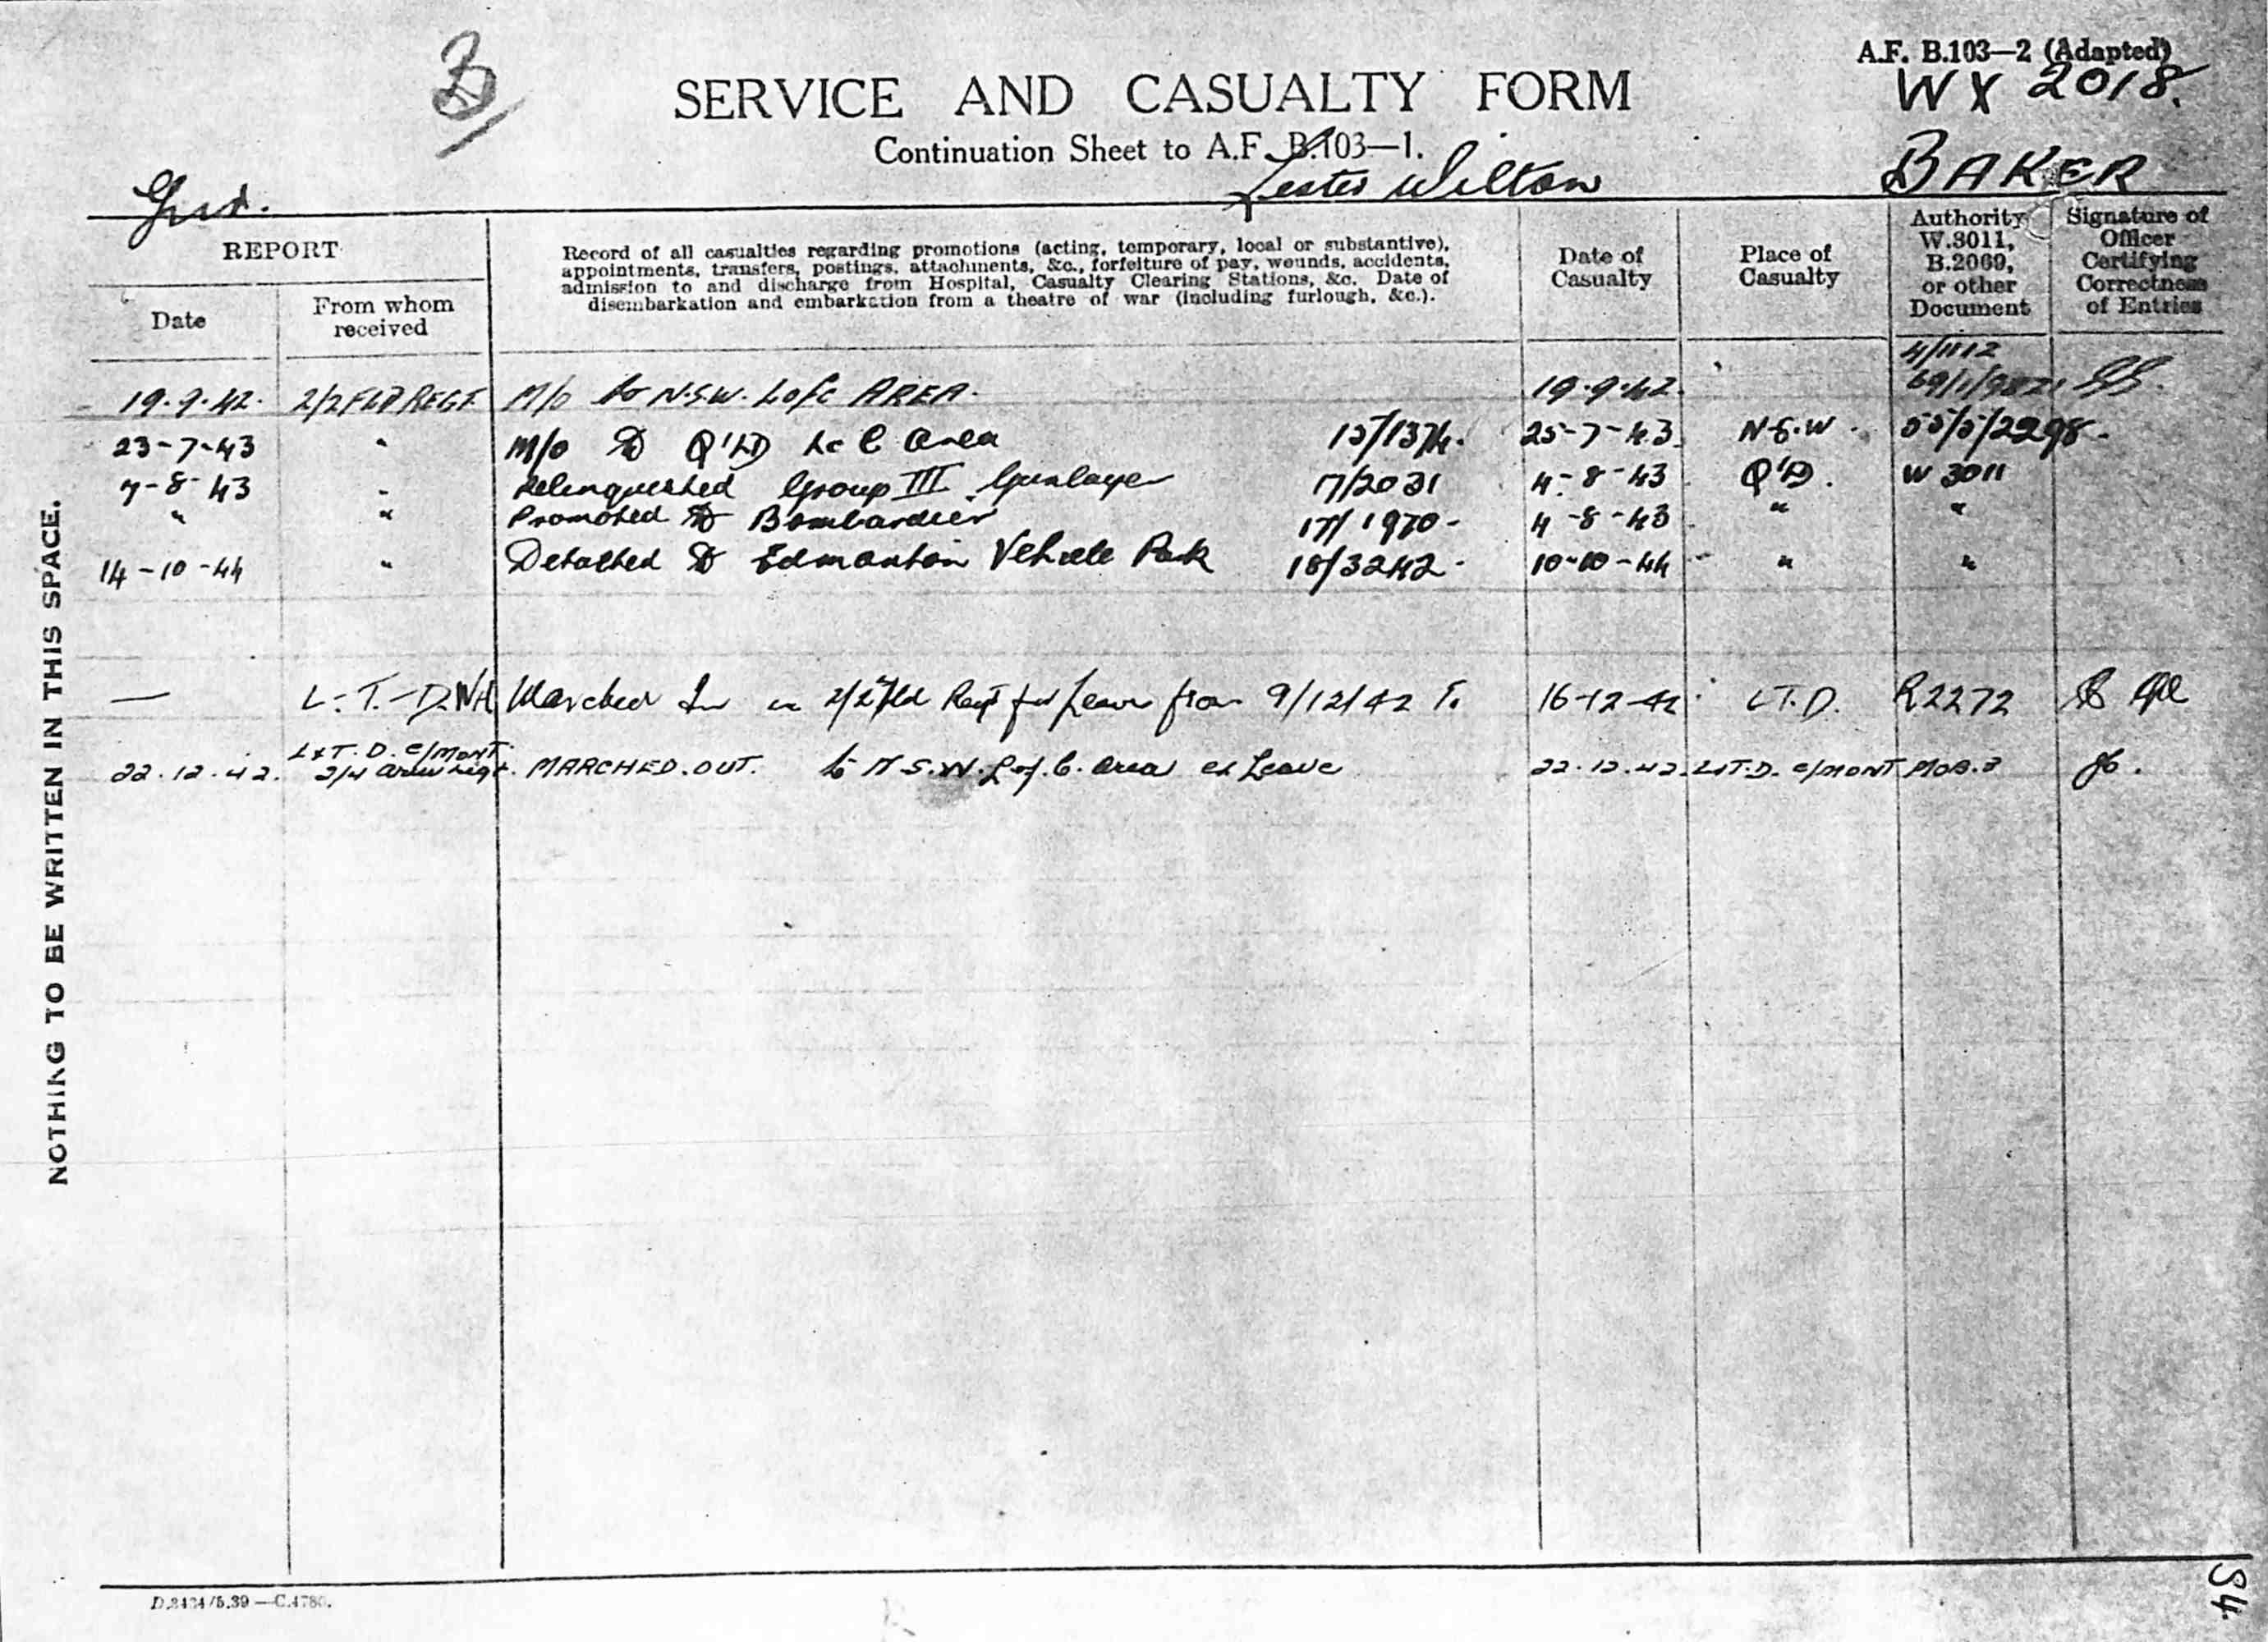 3
A.F. B.103—2 (Adapted)
WX 2018.
SERVICE AND CASUALTY FORM
Continuation Sheet to A.F. B.103—1.
Lester Wilton
BAKER
REPORT
Date
From whom received
Record of all casualties regarding promotions (acting, temporary, local or substantive),
appointments, transfers, postings, attachments, &c., forfeiture of pay, wounds, accidents,
admission to and discharge from Hospital, Casualty Clearing Stations, &c. Date of
disembarkation and embarkation from a theatre of war (including furlough, &c.).
Date of Casualty
Place of Casualty
Authority W.3011, B.2069, or other Document
Signature of Officer Certifying Correctness of Entries
4/1112
19.9.42. 2/2 FLD REGT M/o to N.S.W. L of C AREA. 19.9.42.
23-7-43 " M/o to Q'LD L of C Area 15/1374. 25-7-43. N.S.W. 55/5/2298.
7-8-43 " Relinquished Group III Gunlayer 17/2031 4-8-43 Q'D. W 3011
" " Promoted to Bombardier 17/1970- 4-8-43 " "
14-10-44 " Detached to Edmonton Vehicle Park 18/3242- 10-10-44 " "
— L.T.D. WA Marched In in 2/2 Fld Regt for Leave from 9/12/42 16-12-42 L.T.D. R2272
22.12.42. L&T.D. C/MONT. MARCHED.OUT. to N.S.W. L of C. Area ex Leave 22.12.42. L&T.D. C/MONT
NOTHING TO BE WRITTEN IN THIS SPACE.
D.2424/5.39—C.4785.
54